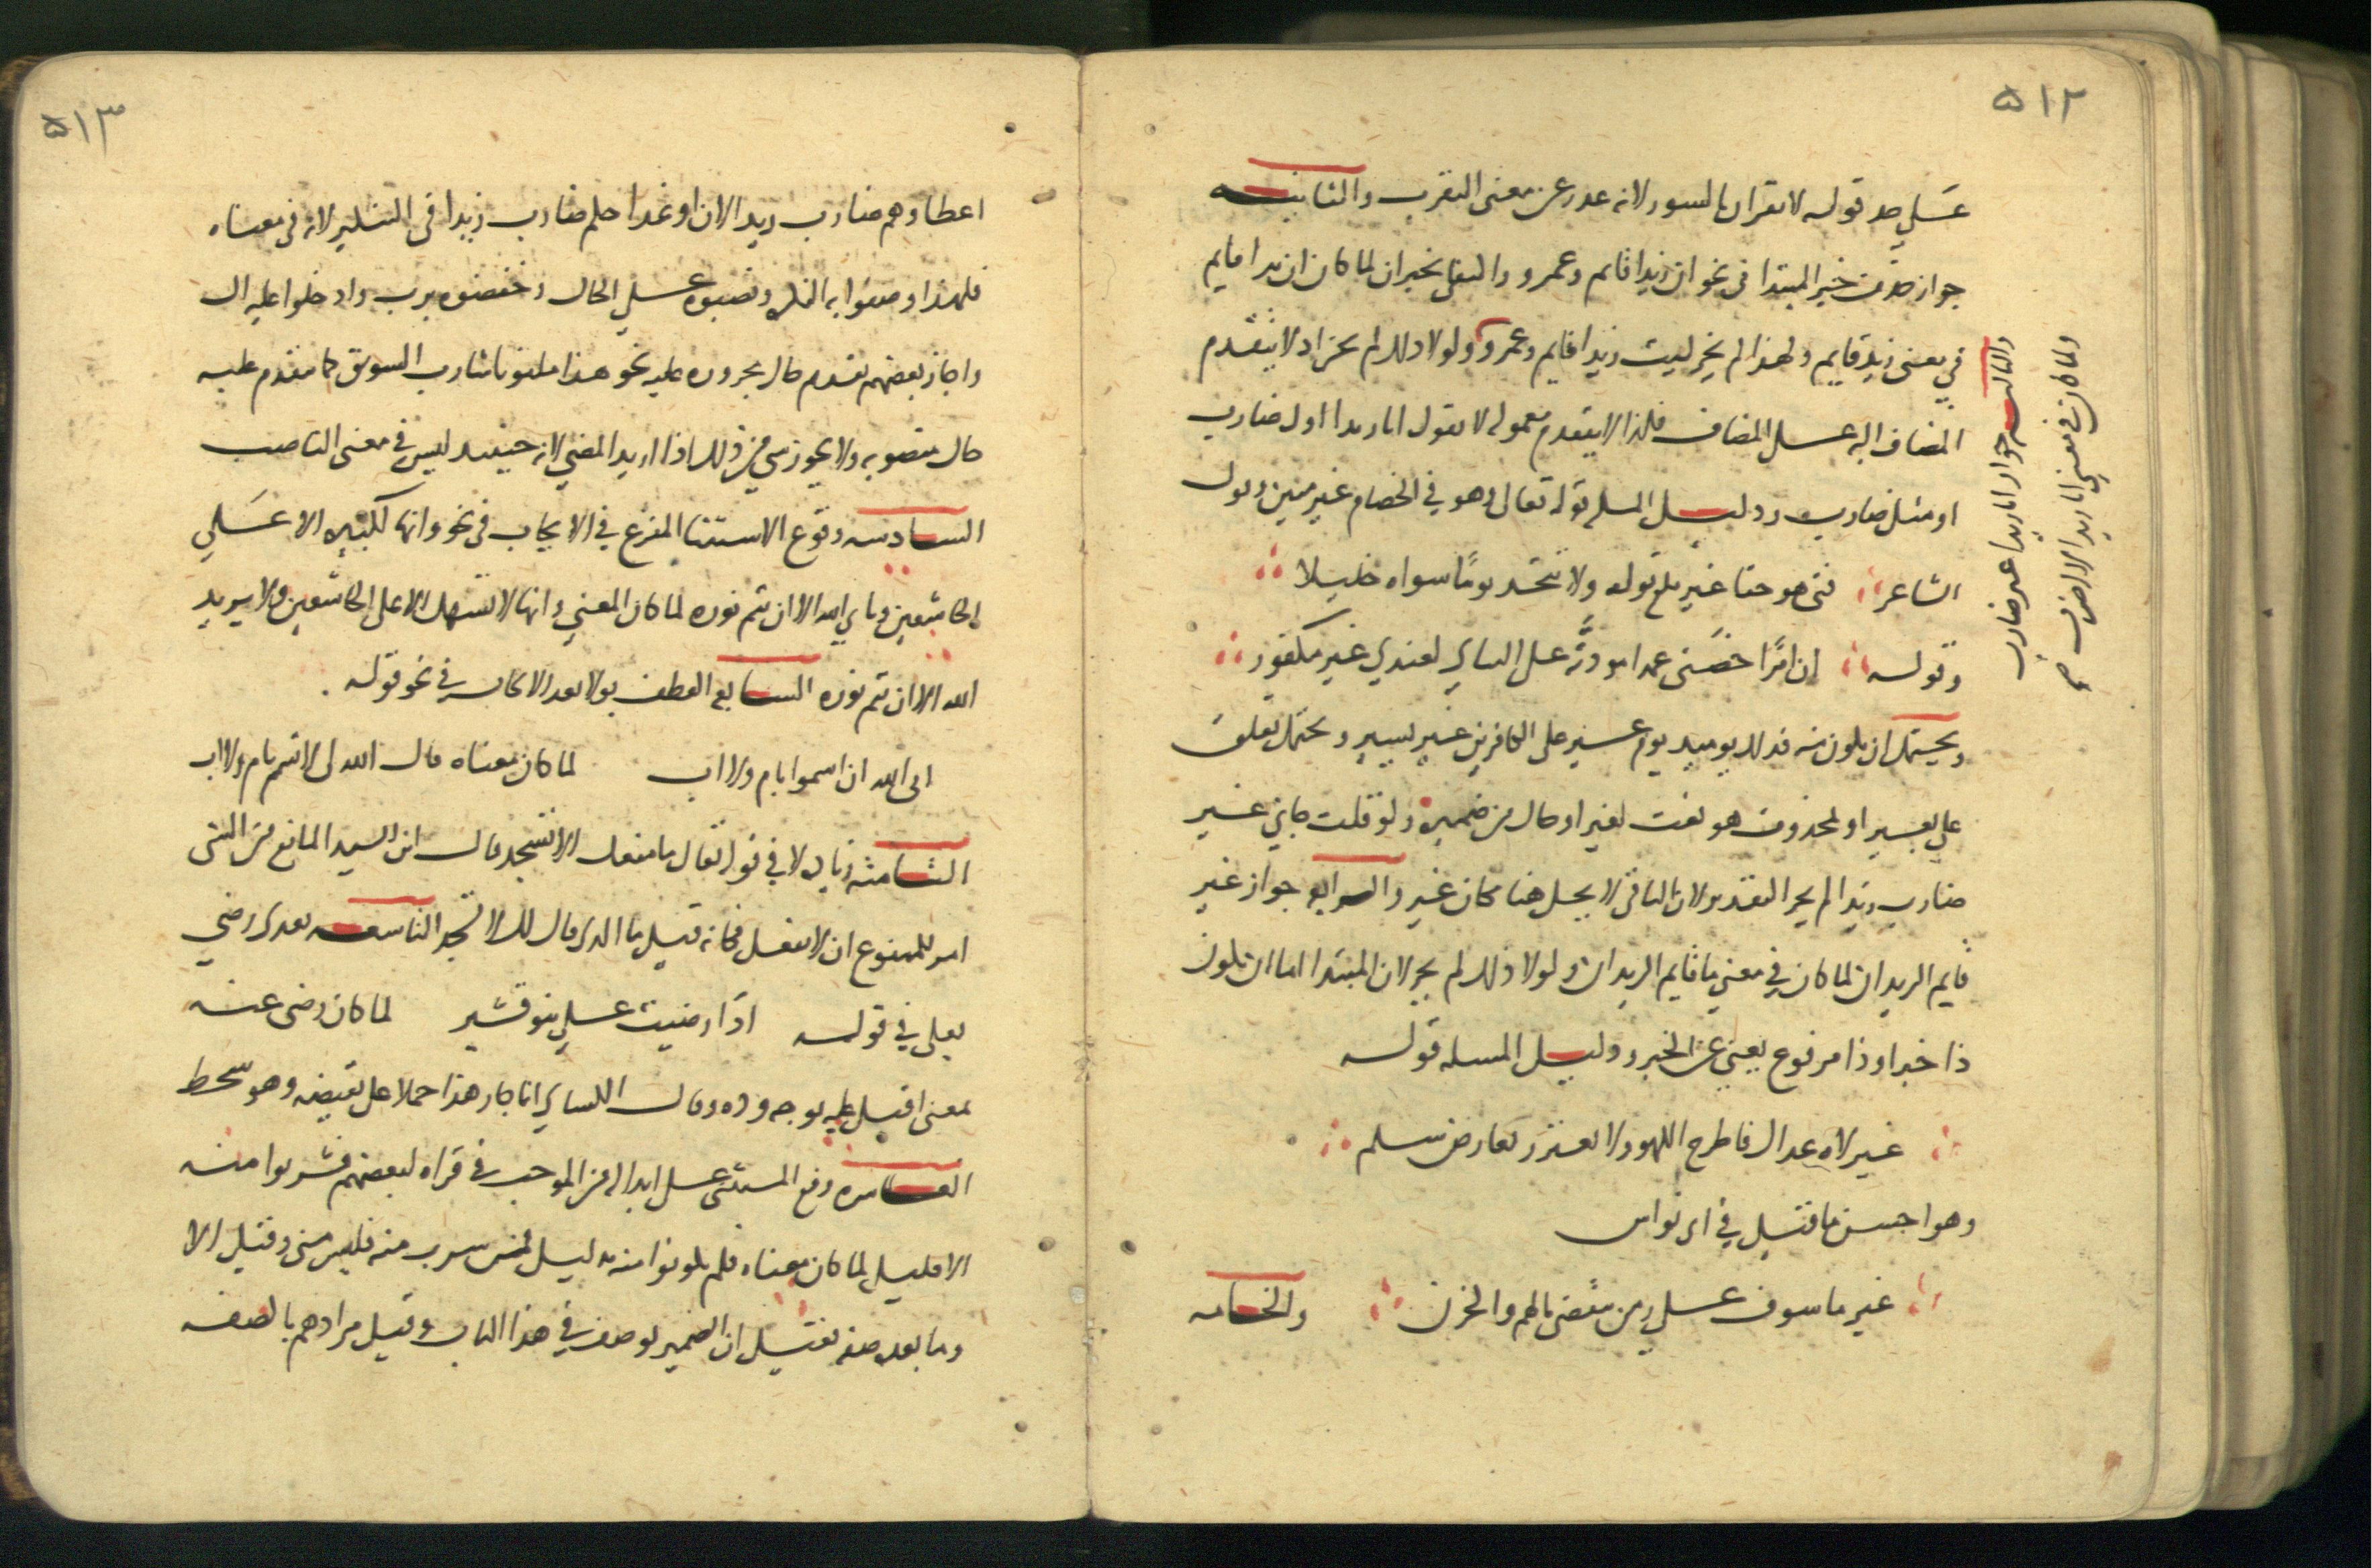 ٥١٢
على حد قوله لا يقرأن بالسور لانه عدى عن معنى التقرب والثانيه
جواز حذف خبر المبتدا في نحو ان زيدا قايم وعمرو والتفى بخبر ان لما كان ان زيدا قايم
في معنى زيد قايم ولهذا لم يجز ليت زيدا قايم وعمرو ولولا ذلك لم يجز اذ لا يتقدم
المضاف اليه على المضاف فلذا لا يتقدم معموله لا تقول انا زيدا اول ضارب
او مثل ضارب ودليل المسله قوله تعالى وهو في الخصام غير مبين وقول
الشاعر فتى هو حقا غير ملغ توله ولا تتخذ يوما سواه خليلا
وقوله ان امرا خصني عمدا مودته على التناي لعندي غير مكفور
ويحتمل ان يكون منه فذلك يوميذ يوم عسير على الكافرين غير يسير ويحتمل تعلق
على بعسير او لمحذوف هو نعت لغير او حال من ضميره ولو قلت جاني غير
ضارب زيدا لم يجز التقديم لان النافي لا يحل هنا مكان غير والرابع جواز غير
قايم الزيدان لما كان في معنى ما قايم الزيدان ولولا ذلك لم يجز لان المبتدا اما ان يكون
ذا خبر او ذا مرفوع يغني عن الخبر ودليل المسله قوله
غير لاه عداك فاطرح اللهو ولا تغترر بعارض سلم
وهو احسن ما قيل في ابى نواس
غير ماسوف على زمن ينقضي بالهم والحزن والخامسه
والثالثه جواز انا زيدا غير ضارب
ولما كان في معنى انا زيدا لا اضرب صح
٥١٣
اعطاوهم ضارب زيد الان او غدا حكم ضارب زيدا في التنكير لانه في معناه
فلهذا وصفوا به النكره ونصبوه على الحال وخفضوه برب وادخلوا عليه ال
واجاز بعضهم تقدم حال مجروره عليه نحو هذا ملتوتا شارب السويق كما يتقدم عليه
حال منصوبه ولا يجوز شي من ذلك اذا اريد المضي لانه حينيذ ليس في معنى الناصب
السادسه وقوع الاستثنا المفرغ في الايجاب في نحو وانها لكبيره الا على
الخاشعين ويابى الله الا ان يتم نوره لما كان المعنى وانها لا تسهل الا على الخاشعين ولا يريد
الله الا ان يتم نوره السابع العطف بولا بعد الايجاب في نحو قوله
ابى الله ان اسموا بام ولا اب لما كان معناه قال الله لي لا تسم بام ولا اب
الثامنه زياده لا في قوله تعالى ما منعك الا تسجد قال ابن السيد المانع من الشي
امر للممنوع ان لا يفعل فكانه قيل ما الذي قال لك لا تسجد التاسعه تعدى رضي
بعلى في قوله اذا رضيت على بنو قشير لما كان رضي عنه
بمعنى اقبل عليه بوجه وده وقال الكسائي انما جاز هذا حملا على نقيضه وهو سخط
العاشره رفع المستثنى على ابداله من الموجب في قراه بعضهم فشربوا منه
الا قليل لما كان معناه فلم يكونوا منه بدليل فمن شرب منه فليس مني وقيل الا
وما بعد صفه فقيل ان الضمير يوصف في هذا الباب وقيل مرادهم بالصفه